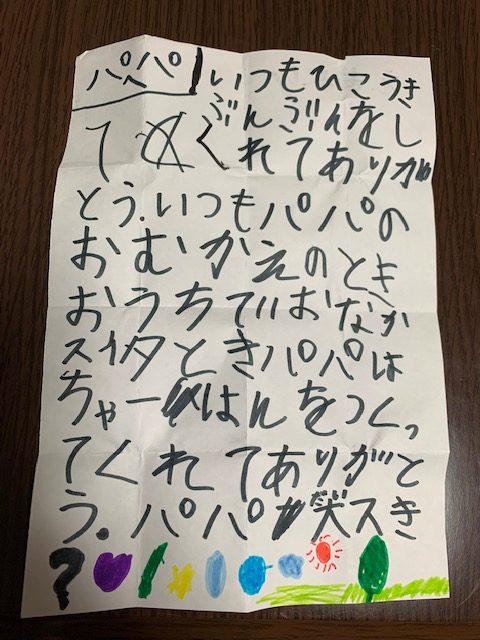 パパへ いつもひこうき
ぶんぶんをし
てくれてありが
とう.いつもパパの
おむかえのとき
おうちでおなか
スイタときパパは
ちゃーはんをつくっ
てくれてありがと
う.パパが大スき
だい
?